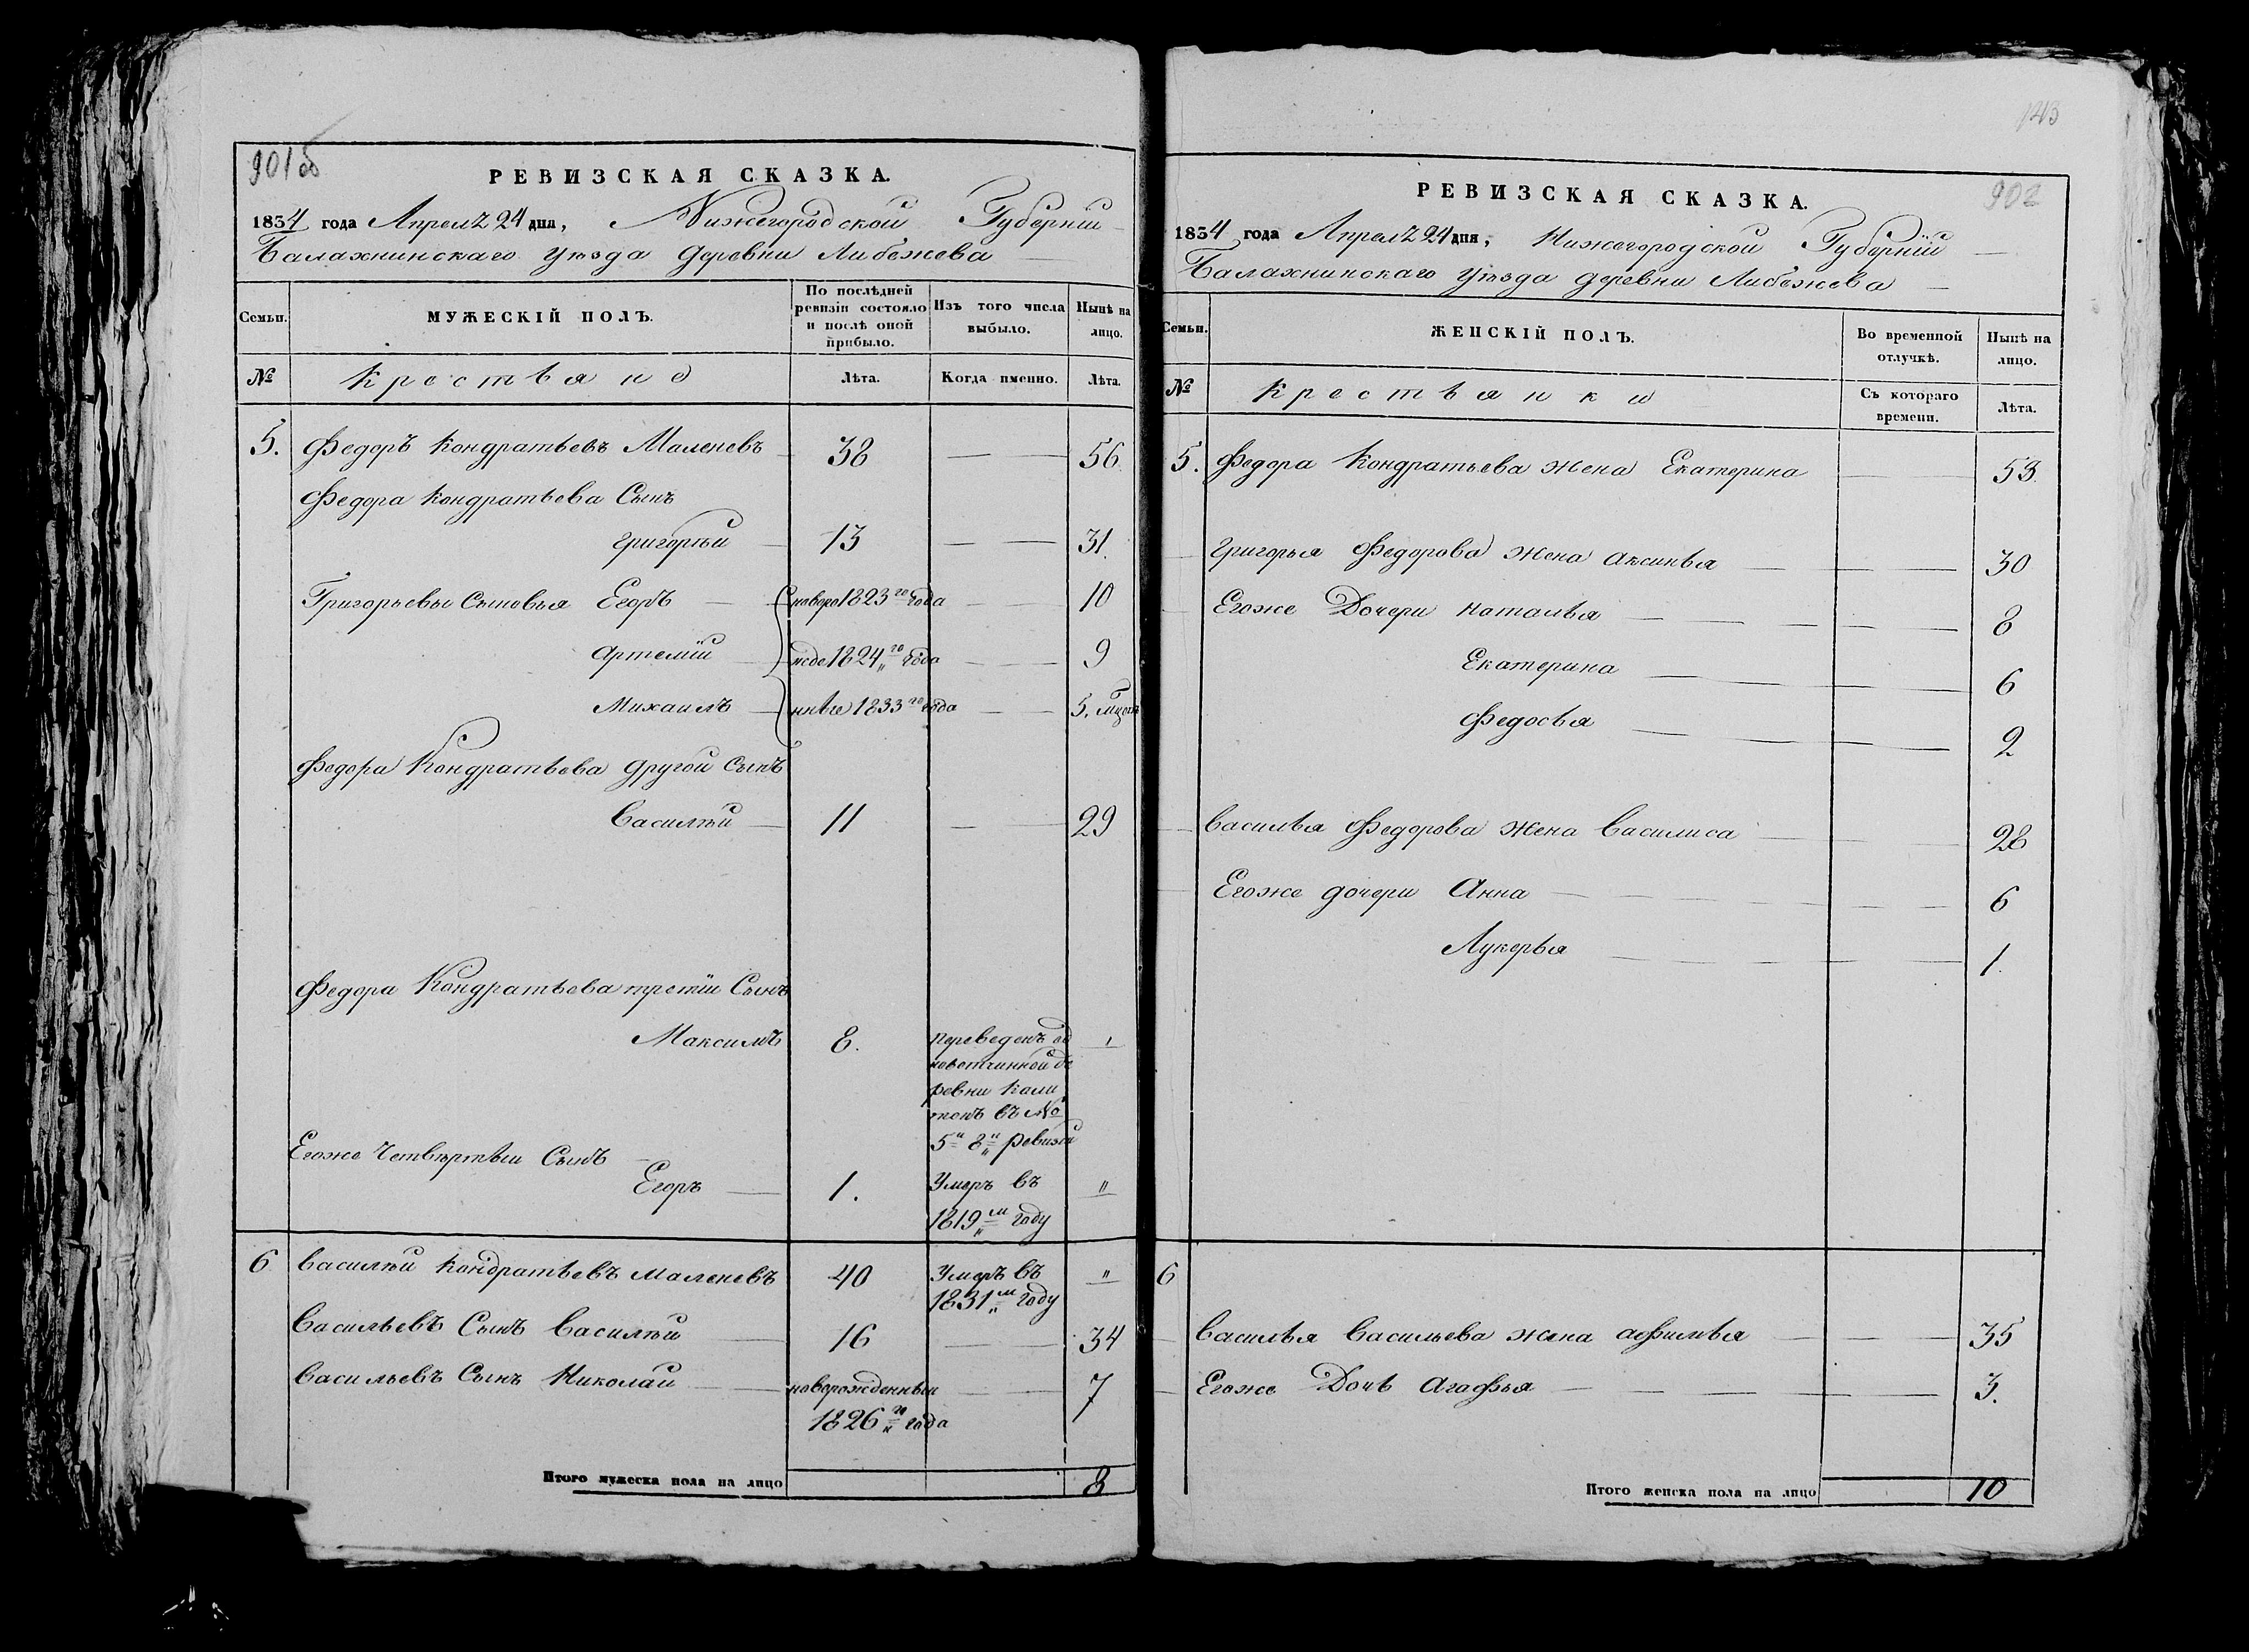 901об
РЕВИЗСКАЯ СКАЗКА.
1834 года Апреля 24 дня, Нижегородской Губерніи
Балахнинскаго уѣзда деревни Либежева
Семьи.
МУЖЕСКІЙ ПОЛЪ.
По послѣдней ревизіи состояло и послѣ оной прибыло.
Изъ того числа выбыло.
Нынѣ на лицо.
№
Крестьяне
Лѣта.
Когда именно.
Лѣта.
5. Федоръ Кондратьевъ Маленевъ 38 — — 56.
Федора Кондратьева Сынъ
Григорѣй — 13 — — 31.
Григорьевы Сыновья Егоръ — новоро 1823го года — — 10
Артемій — жде 1824го года — — 9
Михаилъ — 1833го года — — 5.
Федора Кондратьева другой Сынъ
Василѣй — 11 — — 29
Федора Кондратьева третій Сынъ
Максимъ 8. переведенъ од
новотчинной де
ревни
въ №
5й 8й ревизіи
Егоже Четвѣртѣй Сынъ —
Егоръ — 1. Умеръ въ "
1819м году
6 Василѣй Кондратьевъ Маленевъ 40 Умеръ въ "
1831м году
Васильевъ Сынъ Василѣй — 16 — — 34
Васильевъ Сынъ Николай — новорожденный — — 7
1826го года
Итого мужеска пола на лицо 8
143
902
РЕВИЗСКАЯ СКАЗКА.
1834 года Апреля 24 дня, Нижегородской Губерніи —
Балахнинскаго уѣзда деревни Либежева —
Семьи.
ЖЕНСКІЙ ПОЛЪ.
Во временной отлучкѣ.
Нынѣ на лицо.
№
Крестьянки
Съ котораго времени.
Лѣта.
5. Федора Кондратьева Жена Екатерина — — 53.
Григорья Федорова Жена Аксинья — — — 30
Егоже Дочери Наталья — — — — — 8
Екатерина — — — — 6
Федосья — — — — 2
Василья Федорова Жена Василиса — — — 28
Егоже дочери Анна — — — — — — 6
Лукерья — — — — 1.
6
Василья Васильева жена Афимья — — — 35
Егоже Дочь Агафья — — — — — 3.
Итого женска пола на лицо 10